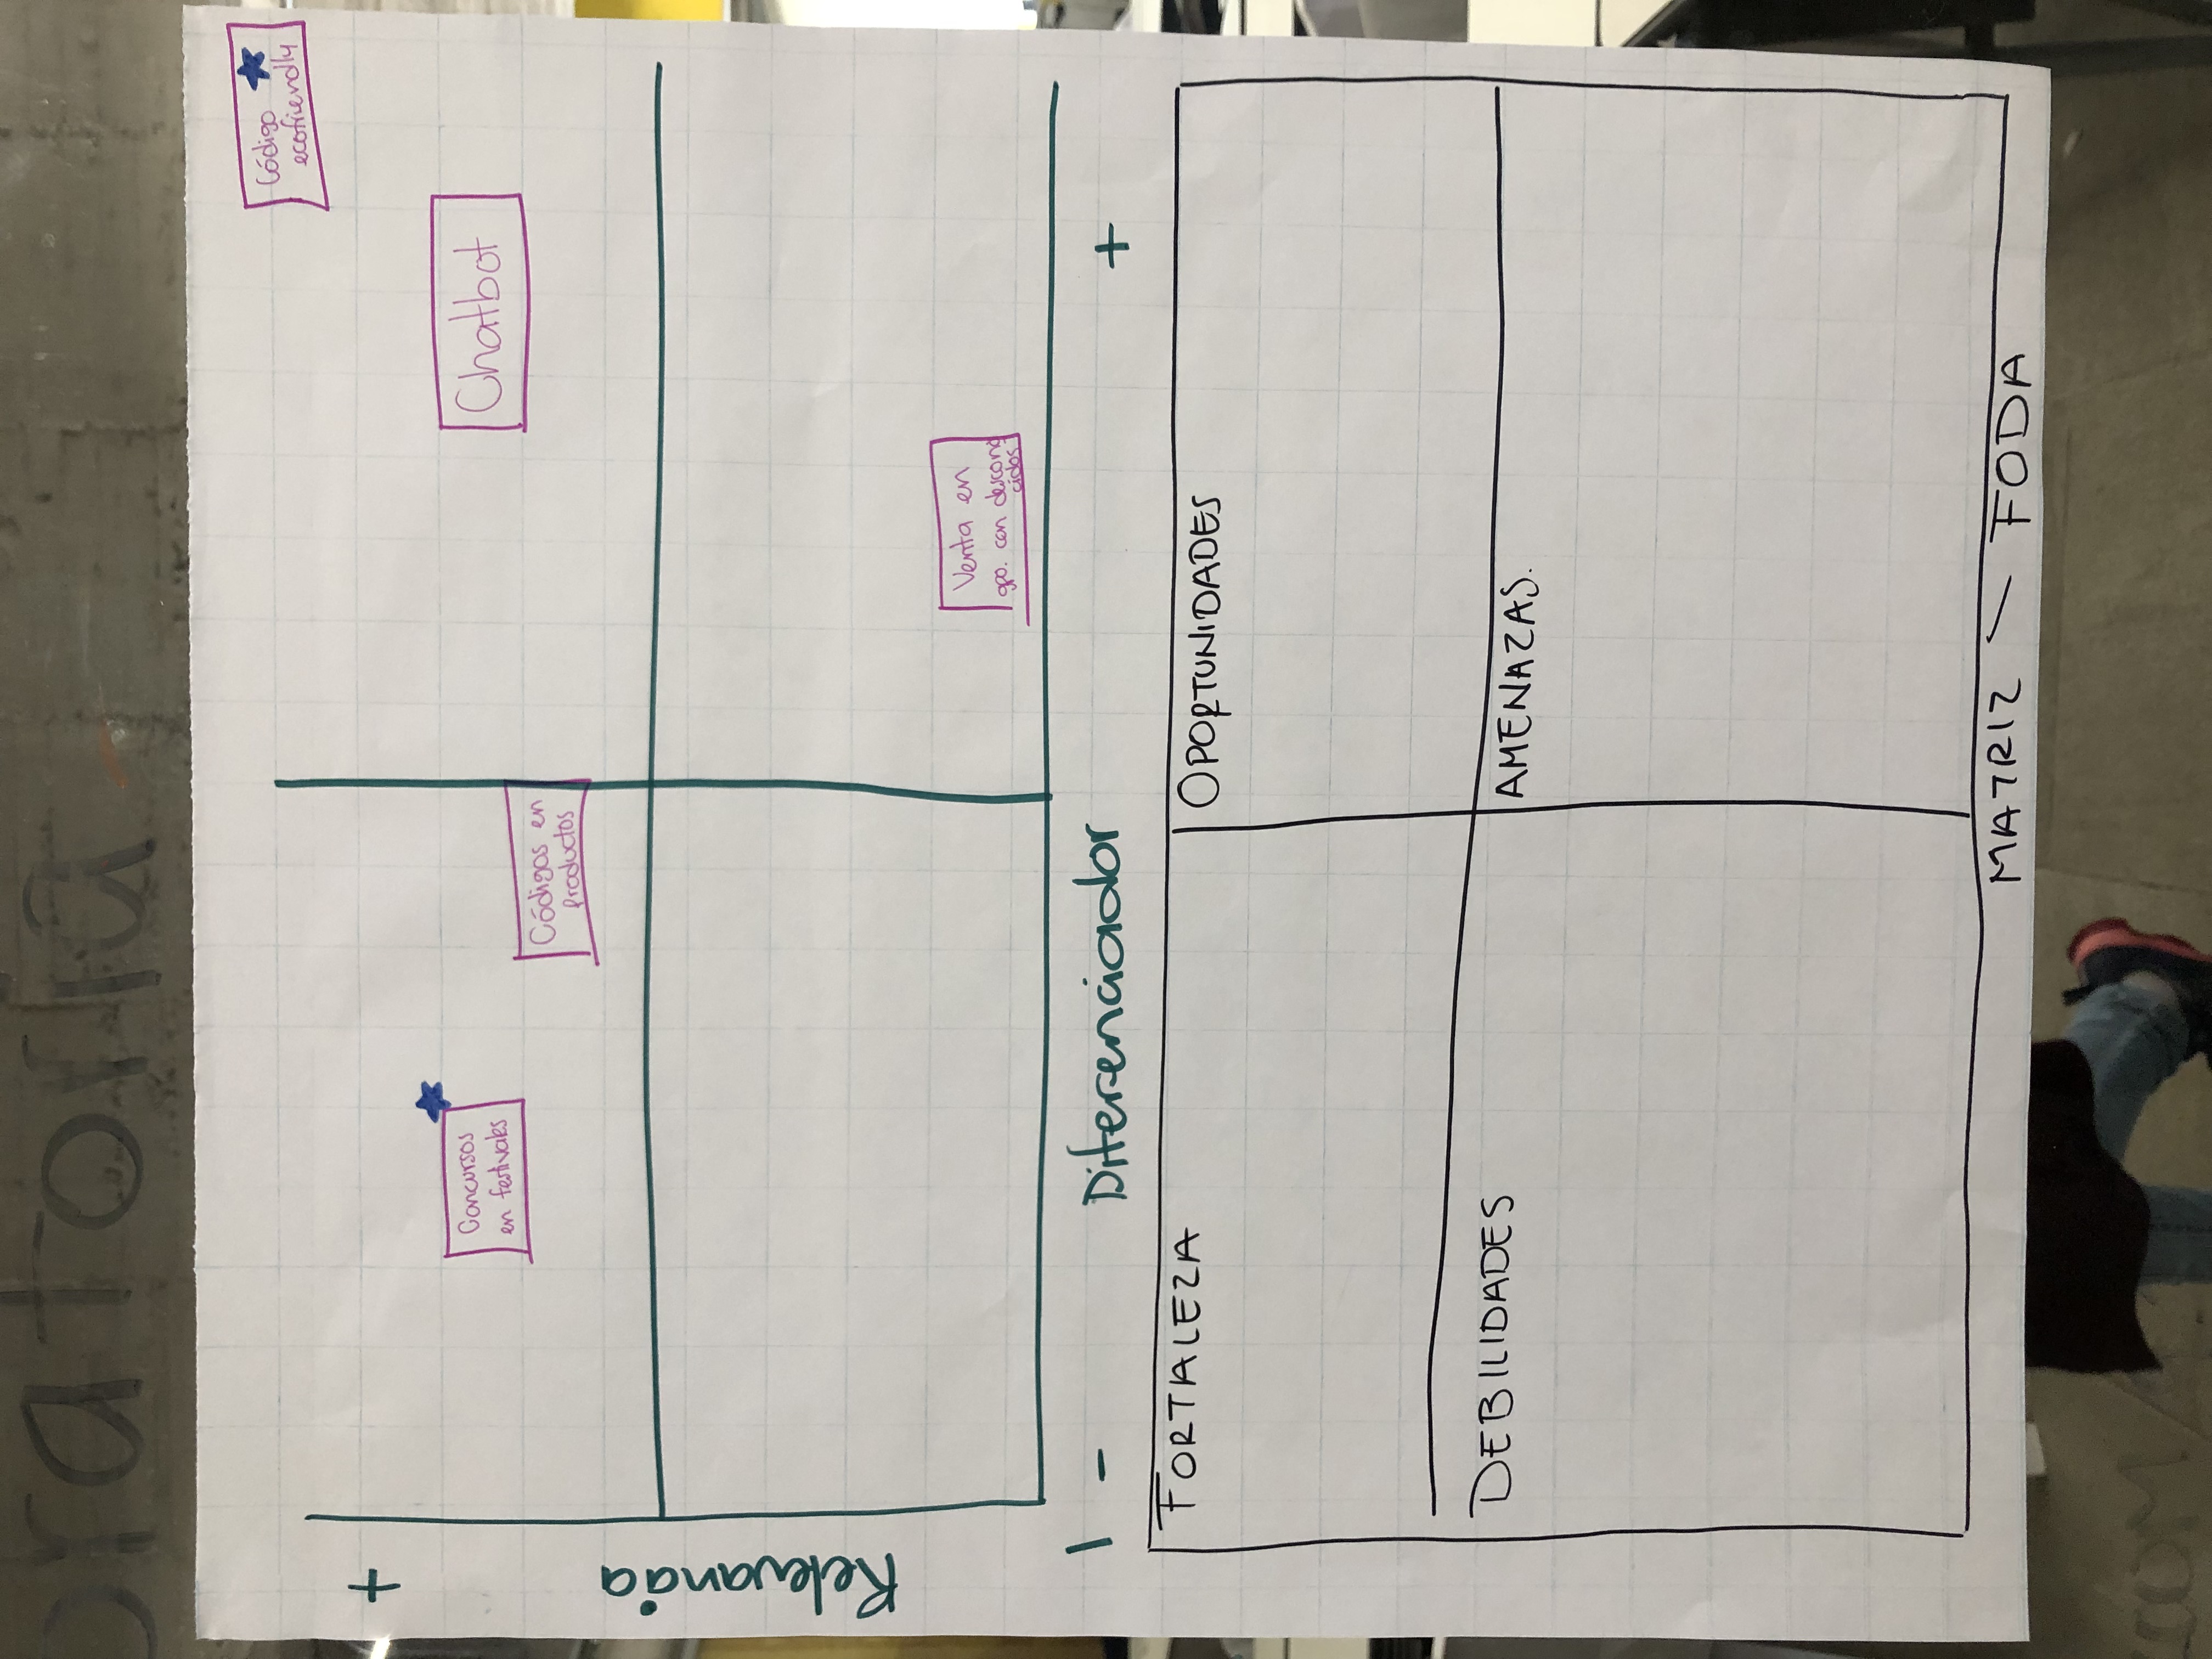 oratoria
Código
ecofriendly
+
Concursos
en festivales
Chatbot
Códigos en
productos
Relevancia
Venta en
gpo. con descono
cidos
| - Diferenciador +
FORTALEZA
OPORTUNIDADES
DEBILIDADES
AMENAZAS.
MATRIZ - FODA